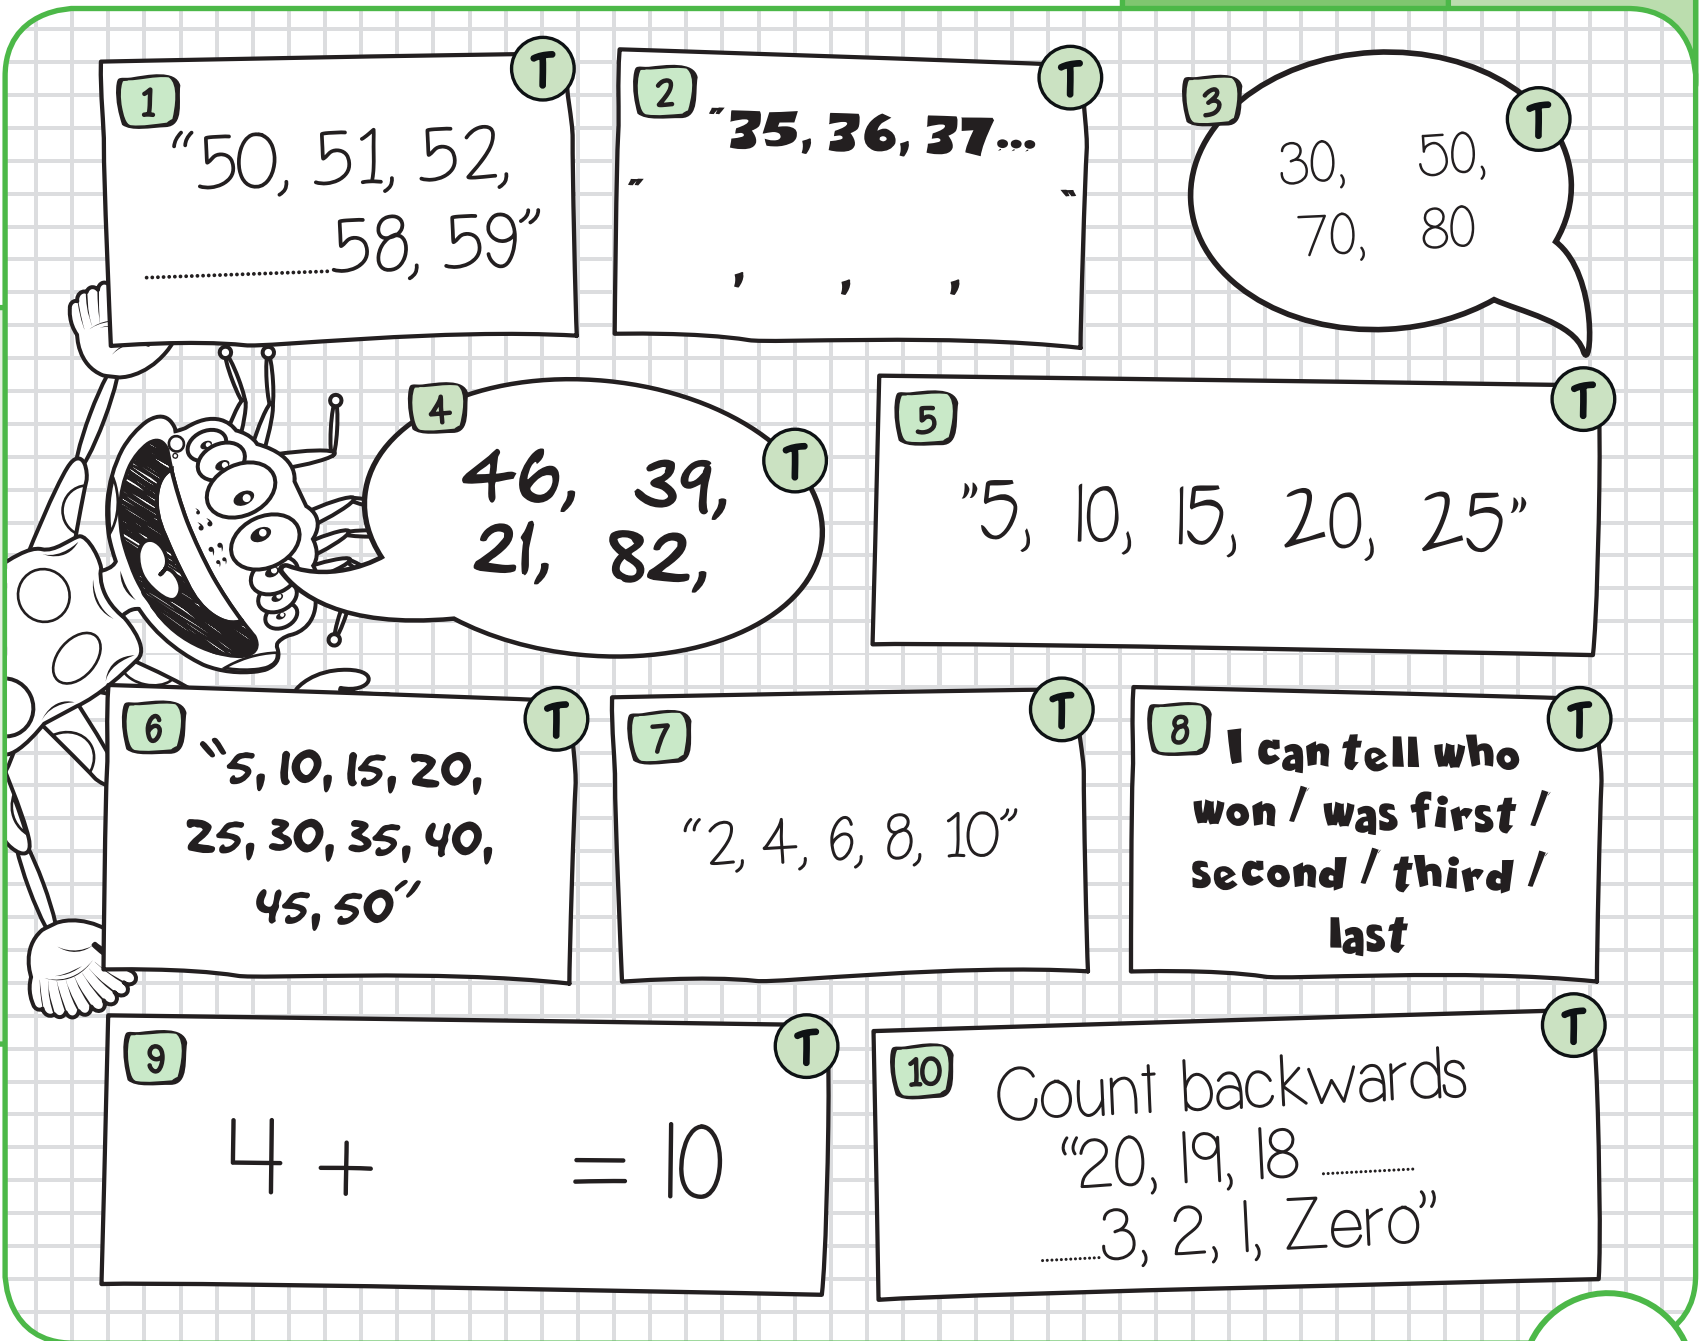 1
T
“50, 51, 52,
....................58, 59”
2
T
“35, 36, 37...
“ ”
, , ,
3
T
30, 50,
70, 80
4
T
46, 39,
21, 82,
5
T
”5, 10, 15, 20, 25”
6
T
“5, 10, 15, 20,
25, 30, 35, 40,
45, 50”
7
T
“2, 4, 6, 8, 10”
8
T
I can tell who
won / was first /
second / third /
last
9
T
4 + = 10
10
T
Count backwards
“20, 19, 18 ..........
.......3, 2, 1, Zero”